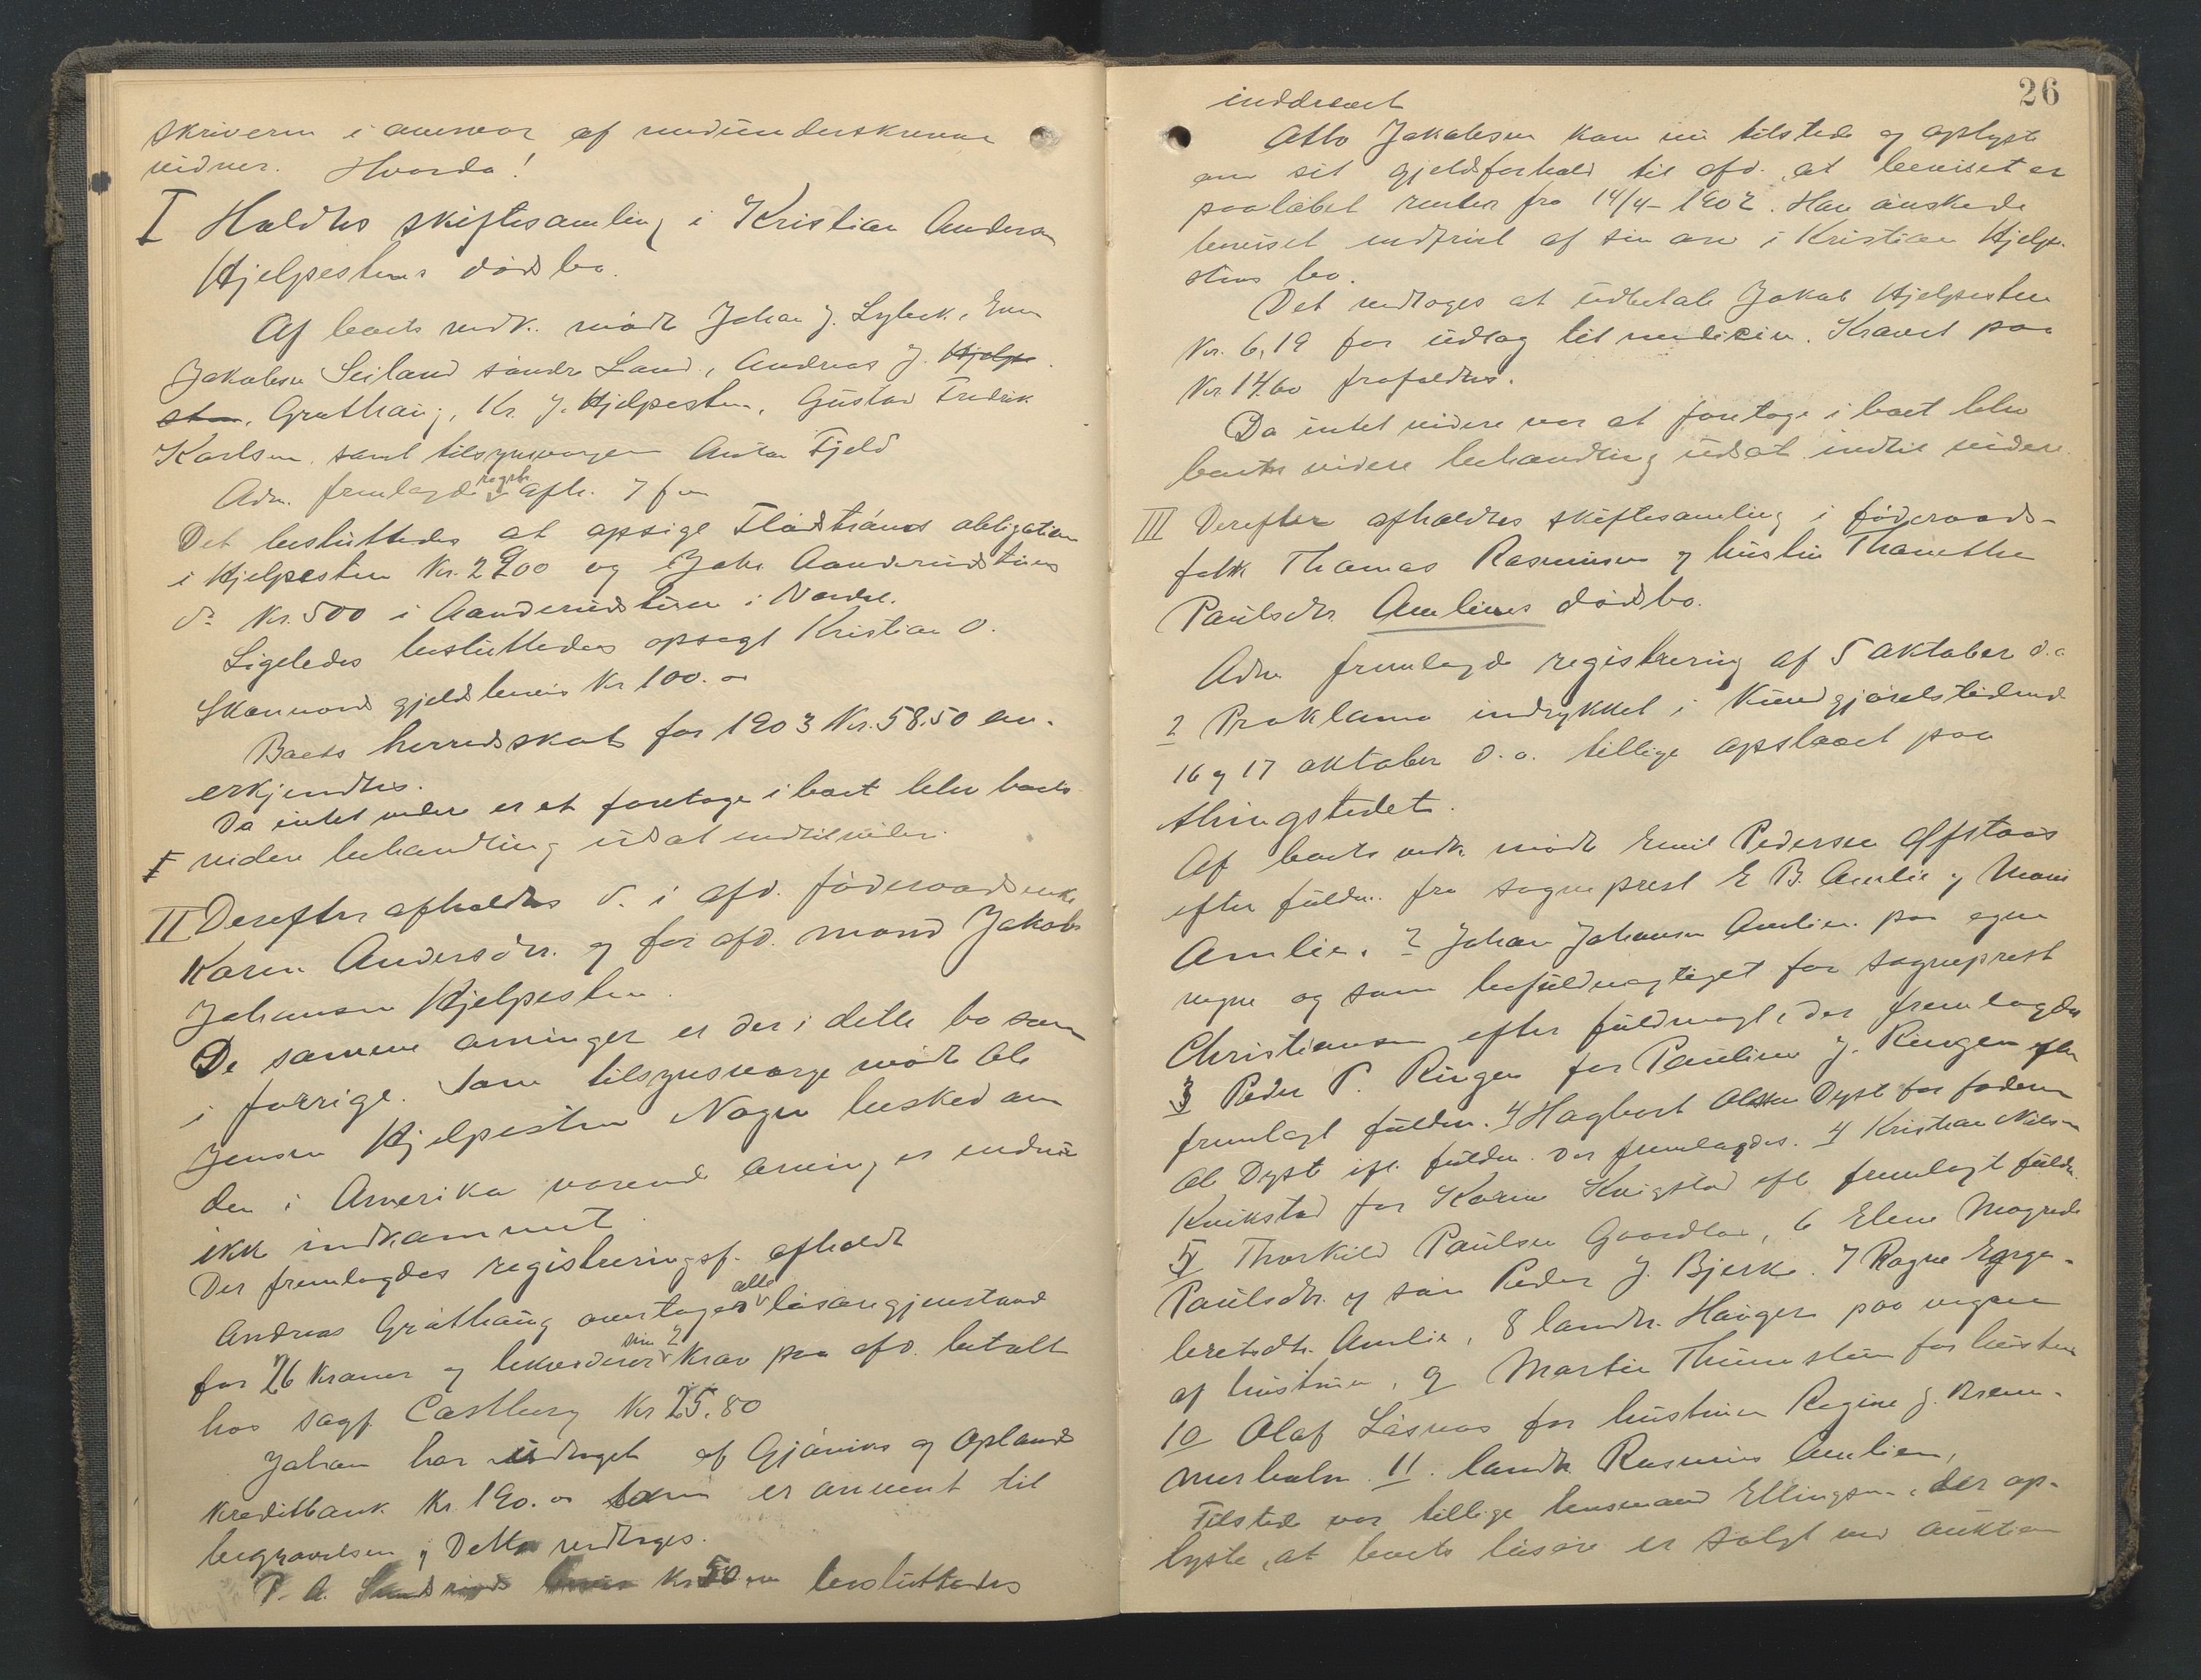 skriveren i overvær af medunderskrevne
vidner. Hvorda!
I Holdtes skiftesamling i Kristian Anderson
Hjelpestens dødsbo.
Af boets vedk. mødte Johan J. Lybeck, Even
Jakobsen Seiland søndre Land, Andreas J. Hjelpe
sten, Grøthaug, Kr. J. Hjelpesten, Gustav Fredrik
Karlsen, samt tilsynsværgen Anton Fjeld
Adm. fremlagde registr. afh. 7 f. m
Det besluttedes at opsige Flådstrånds obligation
i Hjelpesten Kr. 2900 og Johs Aanderudstuens
do Kr. 500 i Aanderudstuen i Nordre.
Ligeledes besluttedes opsagt Kristian O.
Skonnords gjeldsbevis Kr 100.00
Boets herredsskat for 1903 Kr. 58.50 an-
erkjendtes.
Da intet videre er at foretage i boet blev boets
videre behandling udsat indtil videre.
II Derefter afholdtes d. i afd. føderaadsenke
Karen Andersdtr. og før afd. mand Jakob
Johansen Hjelpesten.
De samme arvinger er der i dette bo som
i forrige. Som tilsynsværge mødte Ole
Jensen Hjelpesten Nogen besked om
den i Amerika værende arving er endnu
ikke indkommet.
Der fremlagdes registreringsf. afholdt
Andreas Grøthaug overtager alle løsøregjenstande
for 26 kroner og likviderer sin 2 krav paa afd. betalt
hos sagf. Castberg Kr 25.80
Johan har udtaget af Gjøviks og Oplands
Kreditbank Kr. 190.00 som er anvent til
begravelsen, Dette vedtoges.
P. A. Kr 50.00 besluttedes
26
inddrevet
Otto Jakobsen kom nu tilstede og oplyste
om sit gjeldsforhold til afd. at beviset er
paaløbet renter fra 14/4-1902. Han ønskede
beviset indfriet af sin arv i Kristian Hjelpe-
stens bo.
Det vedtoges at udbetale Jakob Hjelpesten
Kr. 6,19 for udlæg til medicin. Kravet paa
Kr 14.60 frafaldtes.
Da intet videre var at foretage i boet blev
boets videre behandling udsat indtil videre
III Derefter afholdtes skiftesamling i føderaads-
folk Thomas Rasmusen og hustru Thorethe
Paulsdtr. Amliens dødsbo.
Adm fremlagde registrering af 5 oktober d.a
2 Proklama indrykket i Kundgjørelstidende
16 og 17 oktober d. a. tillige opslaaet paa
thingstedet.
Af boets vedk mødte Emil Pedersen Øfstaas
efter fuldm. fra sogneprest E B. Amlie og Marie
Amlie. 2 Johan Johansen Amlien paa egne
vegne og som befuldmægtiget for sogneprest
Christiansen efter fuldmagt, der fremlagdes
3 Peder P. Ringen for Pauline J. Ringen efter
fremlagt fuldm. 4 Hagbart Olsen Dyst for faderen
Ole Dyst ifl. fuldm. der fremlagdes. 4 Kristian Nilsen
Kvikstad for Karen Kvigstad eft. fremlagt fuldm.
5 Thorkild Paulsen Gaardløs, 6 Elene Magrede
Paulsdtr. og søn Peder J. Bjerke. 7 Ragne Enge-
bretsdtr. Amlie, 8 landh. Haugen paa vegne
af hustruen, 9 Martin Thunestuen for hustru
10 Olaf Låsnes for hustruen Regine J. Brem-
merholm. 11. landh Rasmus Amlien,
Tilstede var tillige lensmand Ellingsen, der op-
lyste, at boets løsøre er solgt ved auktion